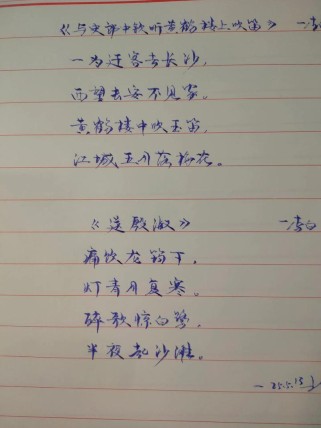 《与史郎中钦听黄鹤楼上吹笛》 —李白
一为迁客去长沙,
西望长安不见家。
黄鹤楼中吹玉笛,
江城五月落梅花。
《送殷淑》 —李白
痛饮龙筇下,
灯青月复寒。
醉歌惊白鹭,
半夜起沙滩。